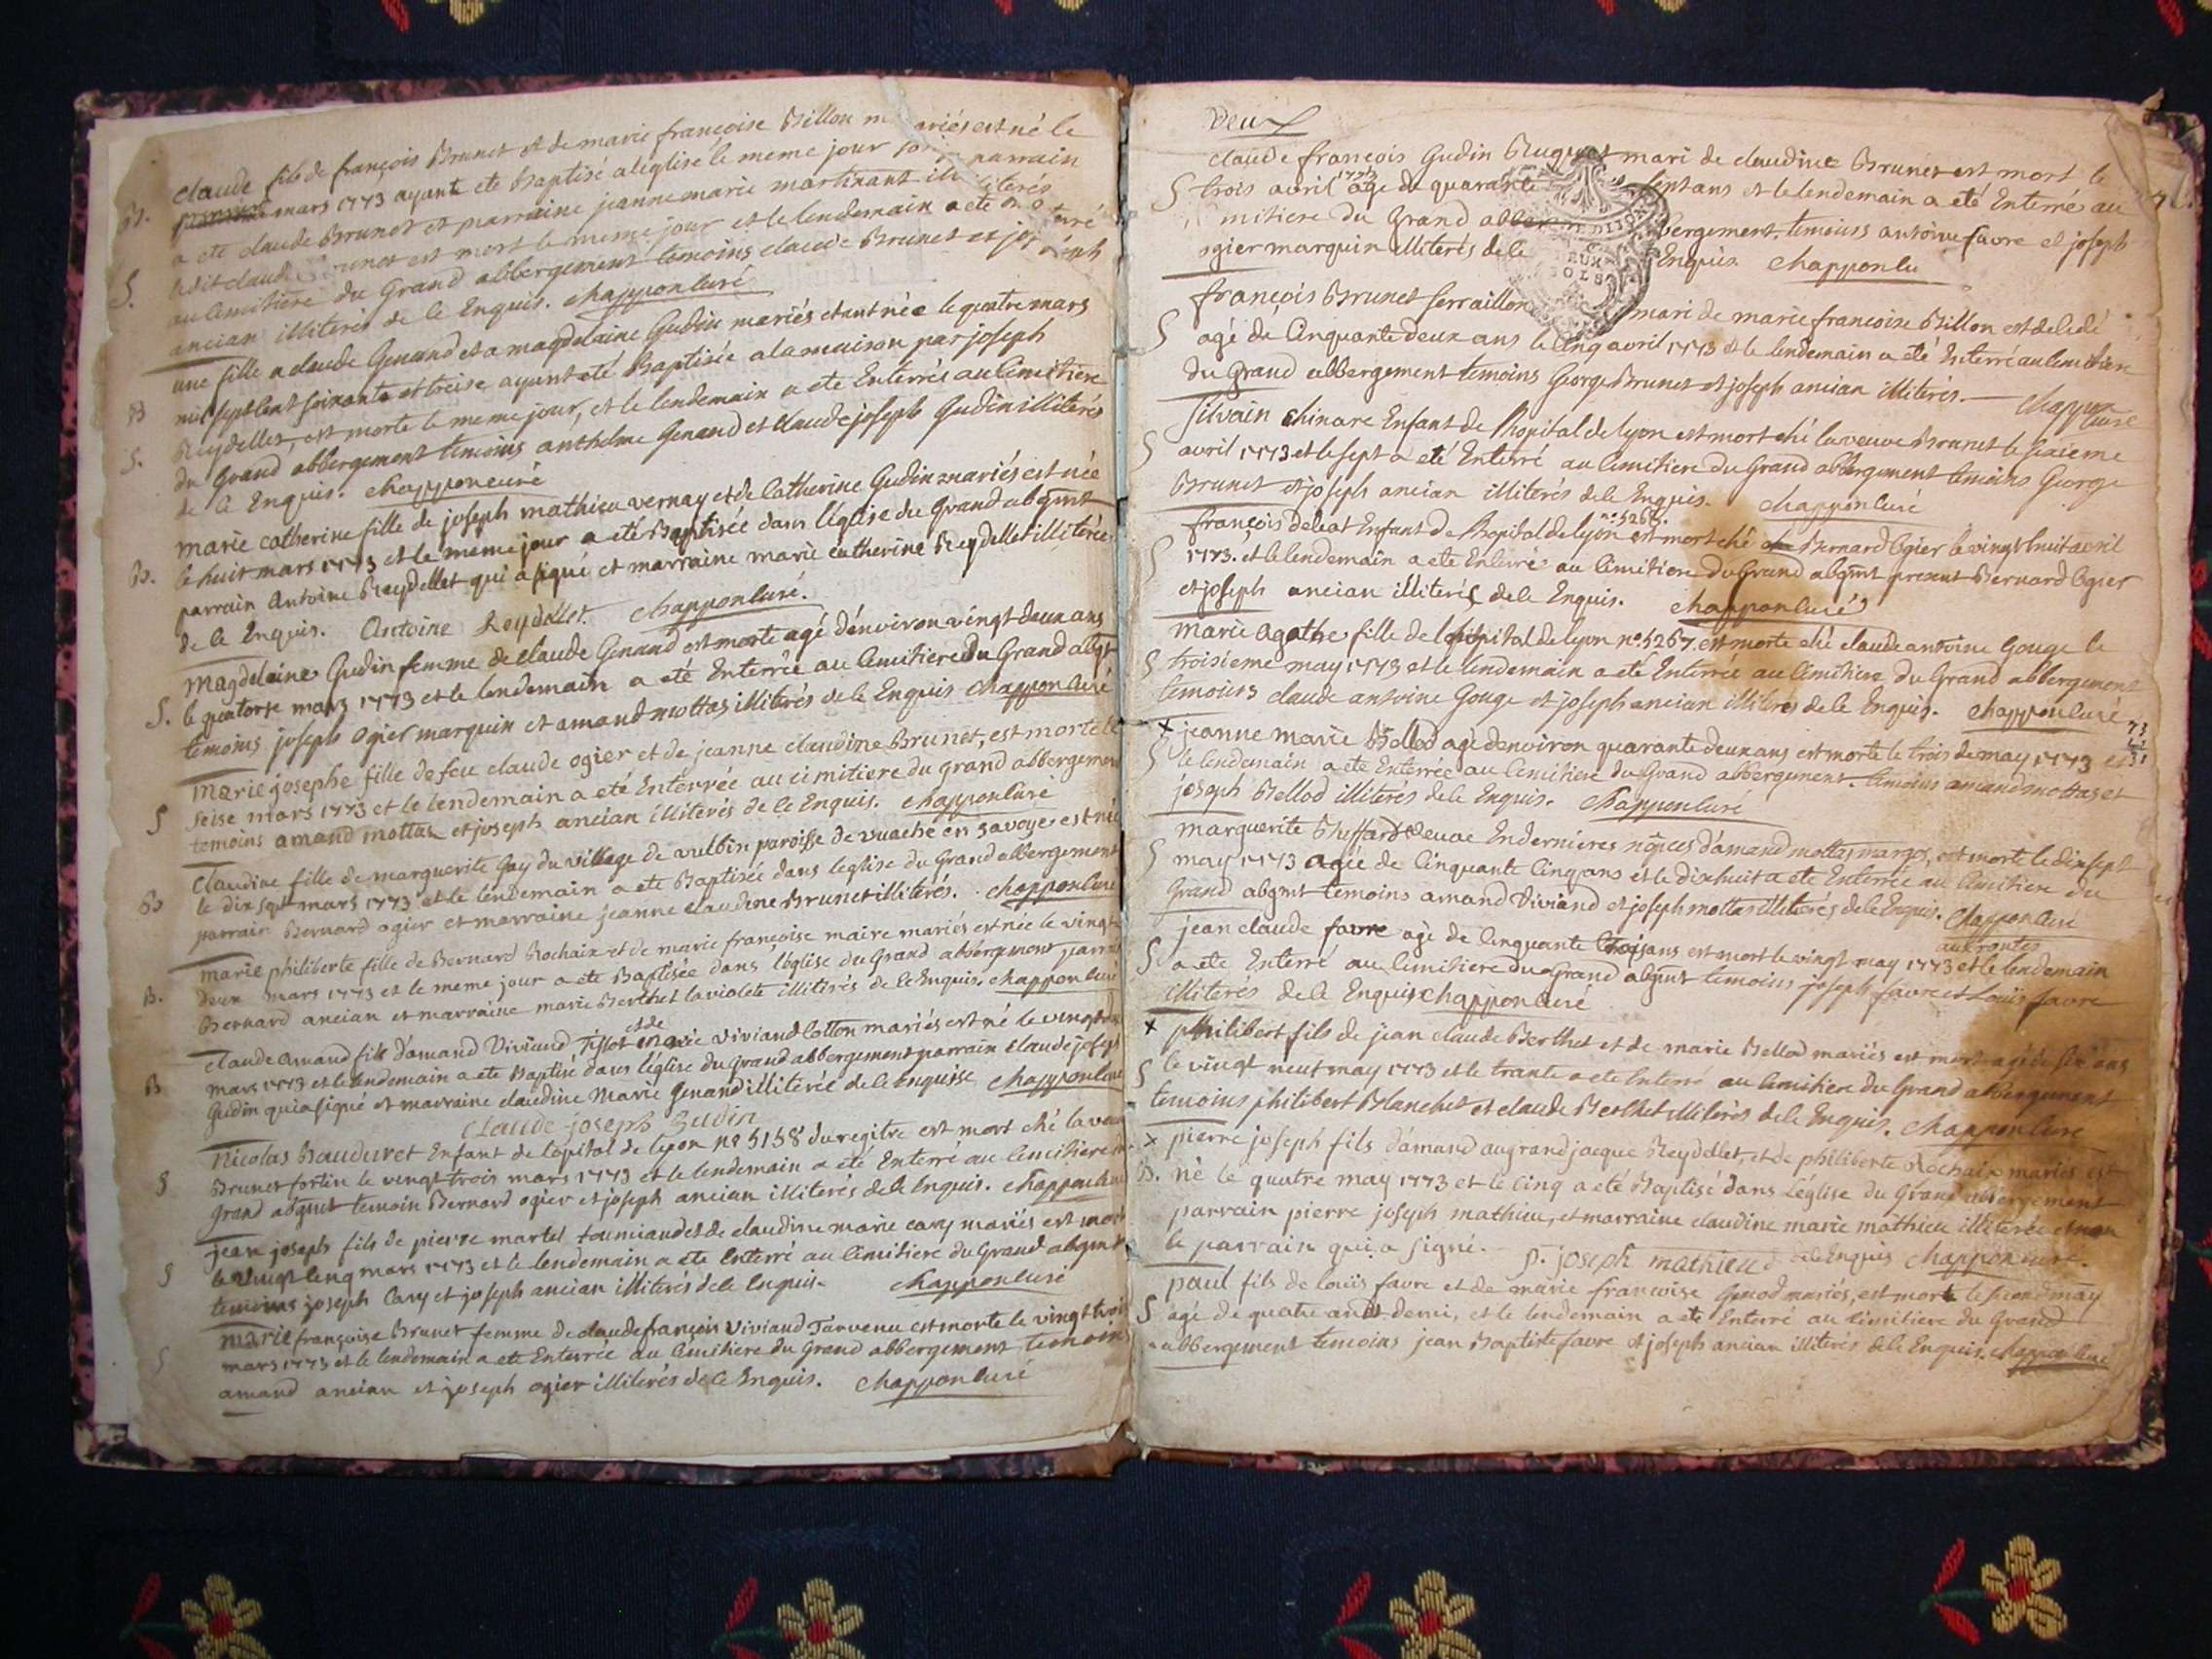 claude fils de françois Brunet et de marie françoise Billon m ariés est né le
B. mars 1773 ayant ete Baptisé a leglise le meme jour son parrain
a ete claude Brunet et marraine jeanne marie martinant illiterés
ledit claude Brunet est mort le meme jour et le lendemain a ete enterré
S. au Cimitiere du Grand abbergement temoins claude Brunet et joseph
ancian illiterés de ce Enquis. chappon curé
une fille a claude Genand et a magdelaine Gudin mariés etant née le quatre mars
B mil sept cent soixante et treise ayant eté Baptisée a la maison par joseph
S. Reydellet, est morte le meme jour, et le lendemain a ete Enterrés au Cimitiere
du Grand abbergement temoins anthelme Genand et claude joseph Gudin illiterés
de ce Enquis. chappon curé
marie catherine fille de joseph mathieu vernay et de Catherine Gudin mariés est née
B. le huit mars 1773 et le meme jour a eté Baptisée dans l'église du Grand abgmt
parrain Antoine Reydellet qui a signé et marraine marie catherine Reydellet illiterée
de ce Enquis. Antoine Reydellet. chappon curé.
magdelaine Gudin femme de claude Genand est morte agé d'environ vingt deux ans
S. le quatorse mars 1773 et le lendemain a eté Enterrée au Cimitiere du Grand abgt
temoins joseph ogier marquin et amand mottas illiterés de ce Enquis chappon curé
marie josephe fille de feu claude ogier et de jeanne claudine Brunet, est morte le
S seise mars 1773 et le lendemain a eté Enterrée au cimitiere du grand abbergement
temoins amand mottas et joseph ancian illiterés de ce Enquis. chappon curé
Claudine fille de marguerite Gay du village de vulbin paroisse de vuache en savoye est née
B le dix sept mars 1773 et le lendemain a ete Baptisée dans leglise du Grand abbergement
parrain Bernard ogier et marraine jeanne claudine Brunet illiterés. chappon curé
marie philiberte fille de Bernard Rochaix et de marie françoise maire mariés est née le vingt
B. deux mars 1773 et le meme jour a ete Baptisée dans l'église du Grand abbergement parrain
Bernard ancian et marraine marie Berthet la violete illiterés de ce Enquis. chappon curé
claude amand fils d'amand Viviand Tissot et de marie Viviand Cotton mariés est né le vingt
B mars 1773 et le lendemain a ete Baptisé dans l'église du Grand abbergement parrain claude joseph
Gudin qui a signé et marraine claudine Marie Genand illiterée de ce Enquisse chappon curé
Claude joseph Gudin
nicolas Bauduret Enfant de l'opital de lyon no 5158 du regitre est mort ché la veuve
S Brunet fortin le vingt trois mars 1773 et le lendemain a eté Enterré au Cimitiere du
Grand abgmt temoin Bernard ogier et joseph ancian illiterés de ce Enquis. chappon curé
jean joseph fils de pierre martel et de claudine marie cary mariés est mort
S le vingt cinq mars 1773 et le lendemain a ete Enterré au Cimitiere du Grand abgmt
temoins joseph Cary et joseph ancian illiterés de ce Enquis. chappon curé
marie françoise Brunet femme de claude françois Viviand Tarvenu est morte le vingt trois
S mars 1773 et le lendemain a ete Enterrée au Cimitiere du Grand abbergement temoins
amand ancian et joseph ogier illiterés de ce Enquis. chappon curé
Deux
claude françois Gudin mari de claudine Brunet est mort le
S trois avril 1773 age de quarante sept ans et le lendemain a eté Enterré au
mitiere du Grand abbergement, temoins antoine favre et joseph
ogier marquin illiterés de ce Enquis chappon cu
DEUX SOLS
françois Brunet serraillon mari de marie francoise Billon est decedé
S agé de Cinquante deux ans le cinq avril 1773 et le lendemain a eté Enterré au cimitiere
du Grand abbergement temoins George Brunet et joseph ancian illiterés. — chappon curé
silvain chinare Enfant de l'hopital de lyon est mort ché la veuve Brunet le sixieme
S avril 1773 et le sept a eté Enterré au Cimitiere du Grand abbergement temoins George
Brunet et joseph ancian illiterés de ce Enquis. chappon curé
françois deleat Enfant de l'hopital de lyon no 5265. est mort ché Bernard Ogier le vingt huit avril
S 1773. et le lendemain a ete Enterré au Cimitiere du Grand abgmt present Bernard Ogier
et joseph ancian illiterés de ce Enquis. chappon curé
marie agathe fille de l'hopital de lyon no 5267 est morte ché claude antoine Gouge le
S troisieme may 1773 et le lendemain a ete Enterrée au Cimitiere du Grand abbergement
temoins claude antoine Gouge et joseph ancian illiterés de ce Enquis. chappon curé
x jeanne marie Bellod agé d'environ quarante deux ans est morte le trois de may 1773 et
S le lendemain a ete Enterrée au Cimitiere du Grand abbergement. temoins amand mottas et
joseph Bellod illiterés de ce Enquis. chappon curé
marguerite veuve En dernieres nôces d'amand mottas margot, est morte le dix sept
S may 1773 agée de Cinquante Cinq ans et le dix huit a ete Enterrée au Cimitiere du
Grand abgmt temoins amand Viviand et joseph mottas illiterés de ce Enquis. chappon curé
jean claude favre agé de Cinquante trois ans est mort le vingt may 1773 et le lendemain
S a ete Enterré au Cimitiere du Grand abgmt temoins joseph favre et Louis favre
illiterés de ce Enquis chappon curé
x philibert fils de jean claude Berthet et de marie Bellod mariés est mort agé de six ans
S le vingt neuf may 1773 et le trante a ete Enterré au Cimitiere du Grand abbergement
temoins philibert Blanchet et claude Berthet illiterés de ce Enquis. chappon curé
x pierre joseph fils d'amand augrandjacque Reydellet, et de philiberte Rochaix mariés est
B. né le quatre may 1773 et le cinq a eté Baptisé dans L'église du Grand abbergement
parrain pierre joseph mathieu, et marraine claudine marie mathieu illiterée et non
le parrain qui a signé. p. joseph mathieu de ce Enquis chappon curé.
paul fils de Louis favre et de marie francoise Genod mariés, est mort le second may
S agé de quatre ans et demi, et le lendemain a ete Enterré au Cimitiere du Grand
abbergement temoins jean Baptiste favre et joseph ancian illiterés de ce Enquis. chappon curé